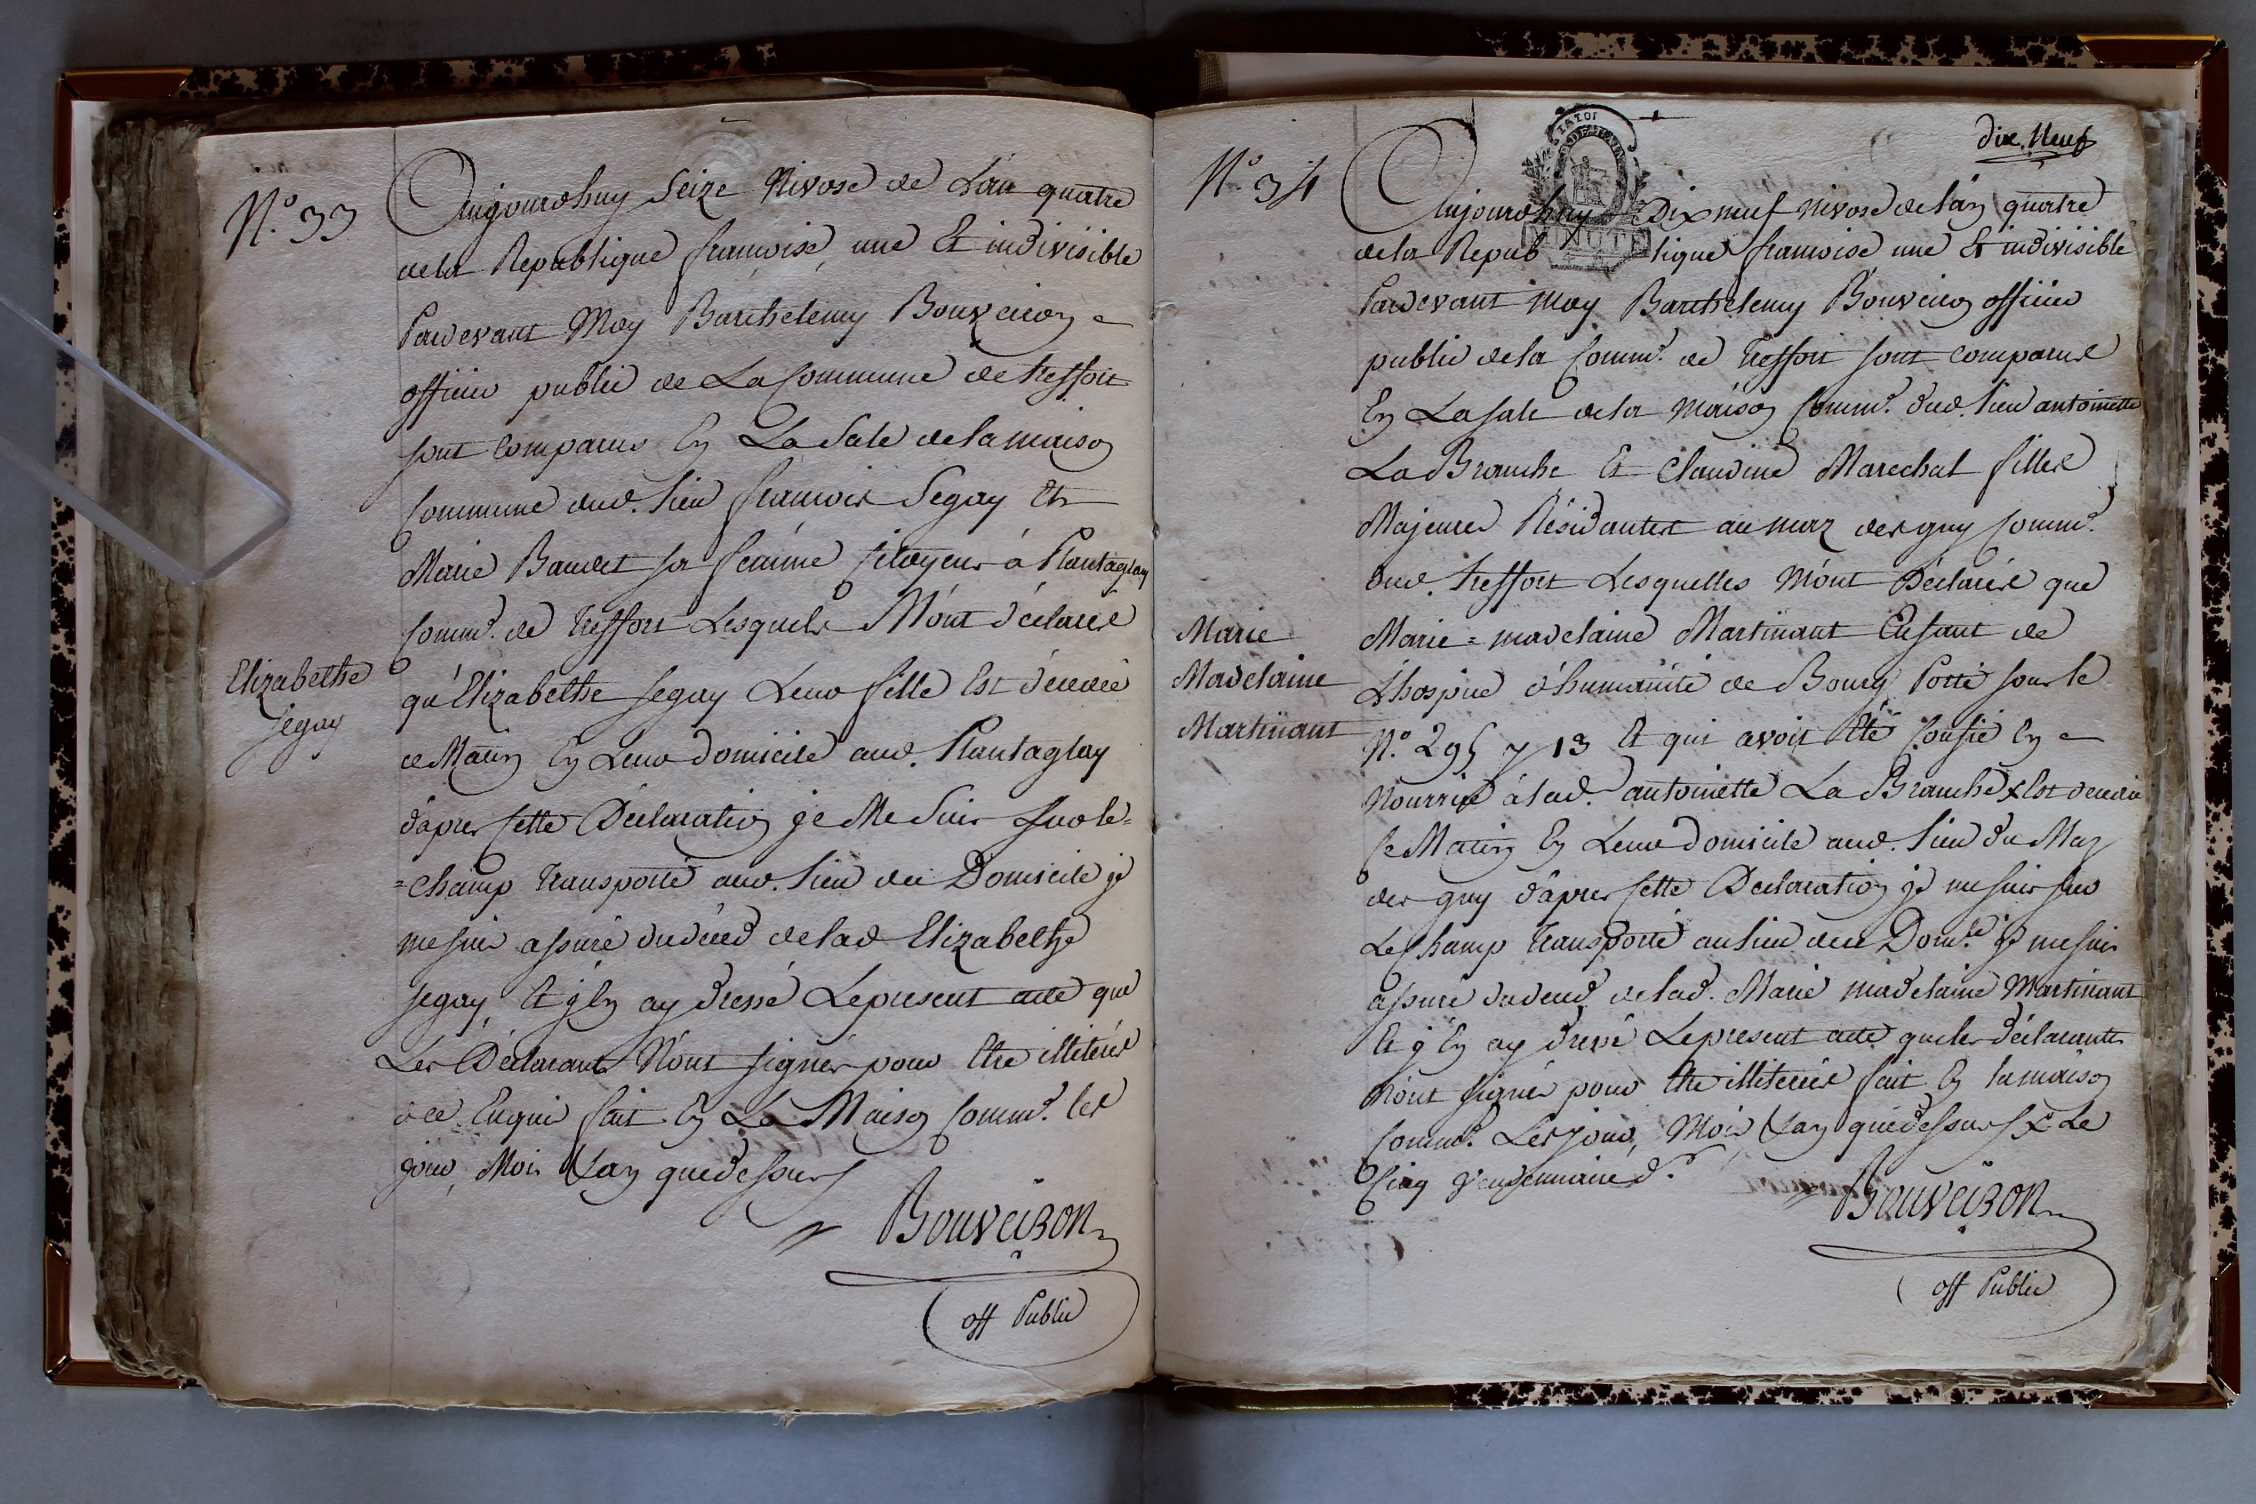 N.º 33
Aujourdhuy Seize Nivose de L'an quatre
de la Republique francoise, une Et indivisible
Pardevant Moy Barthelemy Bouveiron
officier public de La Commune de treffort
sont comparus En La Sale de la maison
Commune dud. lieu francois Segay Et
Marie Baudet sa femme Citoyens à Plantaglay
Comm.e de treffort Lesquels M'ont déclarés
Elizabethe
Segay
qu'Elizabethe Segay Leur fille Est décedée
ce Matin En Leur domicile aud. Plantaglay
d'apres Cette Déclaration je Me Suis Sur le=
=champ transporté aud. lieu de Domicile je
me suis assuré du déced de lad Elizabethe
Segay, Et j'En ay dressé Le present acte que
Les Déclarants N'ont signés pour Etre illiterés
de ce Enquis fait En La Maison Comm.e les
jour, Mois & an que dessus
Bouveiron
off Public
dix. Neuf
MINUTE
N.º 34
Aujourdhuy Dix neuf nivose de l'an quatre
de la Republique francoise une Et indivisible
Pardevant moy Barthelemy Bouveiron officier
public de la Comm.e de treffort sont comparus
En La sale de la maison Comm.e dud. lieu antoinette
La Branche Et Claudine Marechal filles
Majeures Résidantes au maz des guy Comm.e
dud. treffort Lesquelles M'ont Déclarés que
Marie
Madelaine
Martinant
Marie=madelaine Martinant Enfant de
L'hospice d'humanité de Bourg Porté sous le
N.º 295 y 13 Et qui avoit Eté Confié En
Nourrice à lad.e antoinette La Branche x Est decedée
Ce Matin En Leur domicile aud. lieu du Maz
des guy d'apres Cette Declaration je me suis sur
Le Champ transporté au lieu de ce Dom.le je me suis
assuré du deced de lad. Marie madelaine Martinant
Et j'En ay dressé Le present acte que les déclarants
N'ont signés pour Etre illiterés fait En la maison
Comm.e Les jour, Mois & an que dessus x Le
Cinq Vendemiaire d.r
Bouveiron
off Public